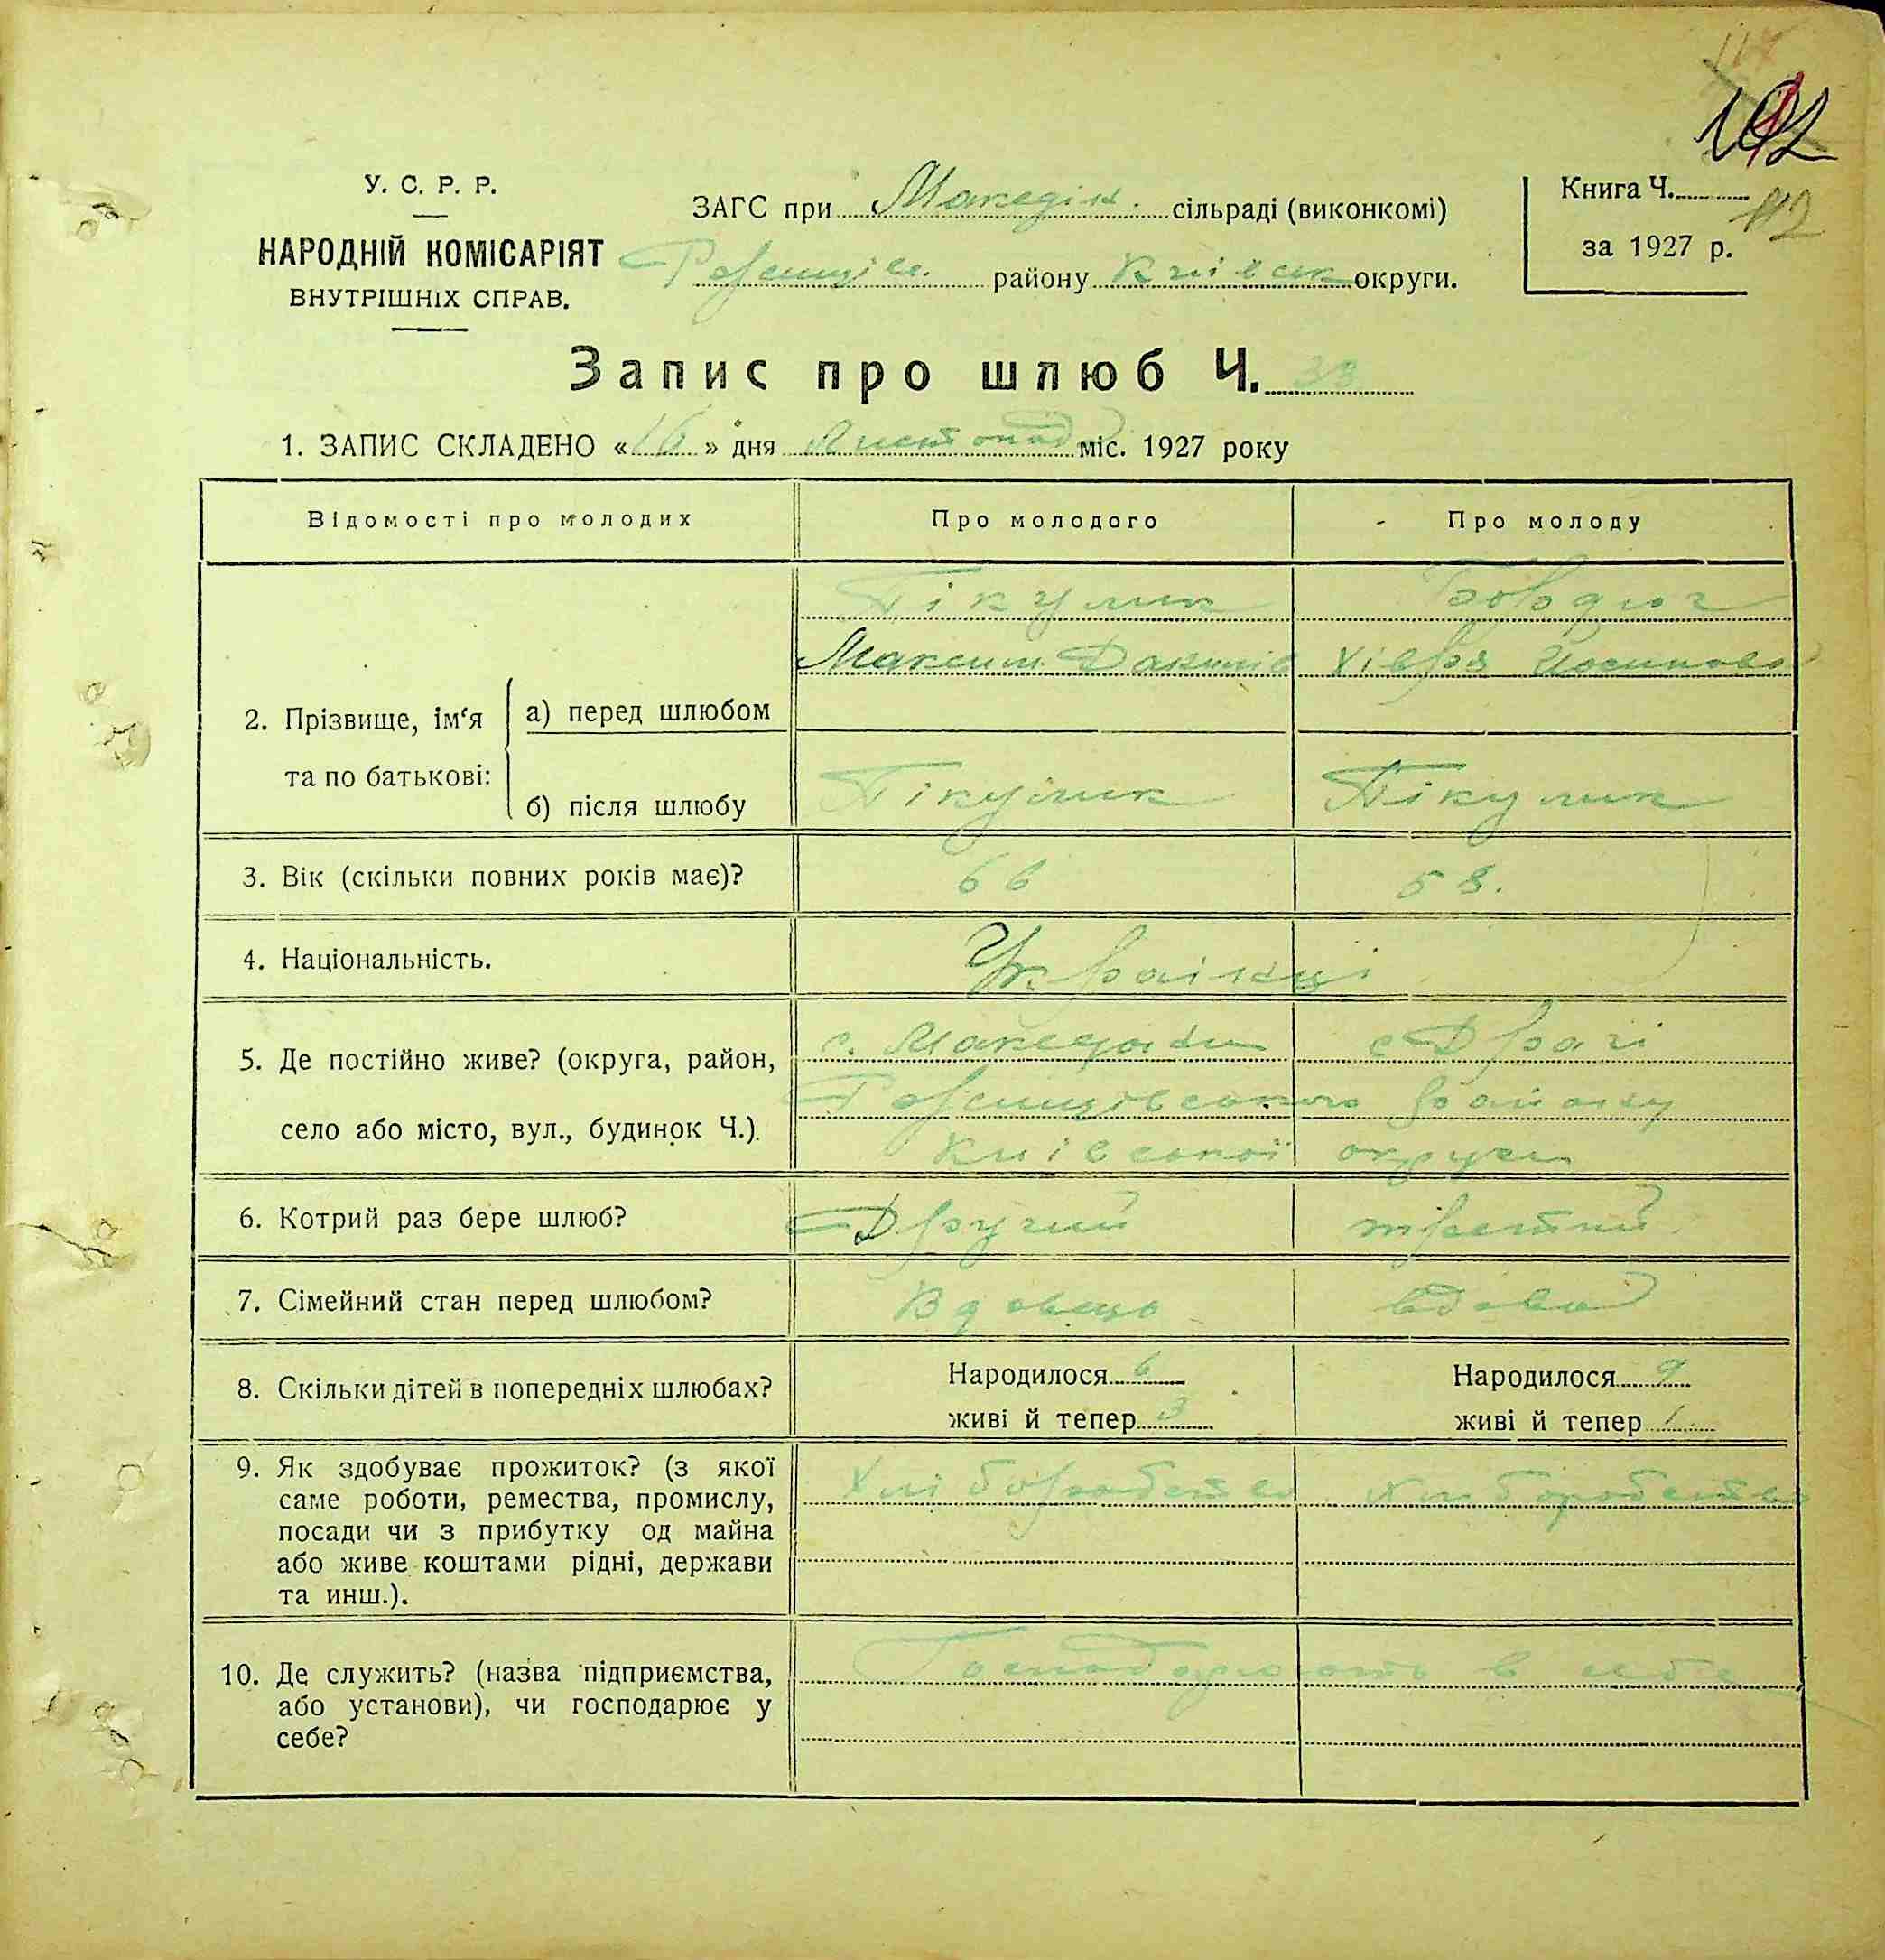 192
У. С. Р. Р.
НАРОДНІЙ КОМІСАРІЯТ
ВНУТРІШНІХ СПРАВ.
ЗАГС при Македін. сільраді (виконкомі)
Ржищів. району Київськ округи.
Книга Ч. 112
за 1927 р.
Запис про шлюб Ч. 33
1. ЗАПИС СКЛАДЕНО «16» дня Листопад міс. 1927 року
Відомості про молодих
Про молодого
Про молоду
2. Прізвище, ім'я та по батькові:
а) перед шлюбом
Пікулик
Максим Данилів
Бовдюг
Хівря Йосипова
б) після шлюбу
Пікулик
Пікулик
3. Вік (скільки повних років має)?
66
58.
4. Національність.
Українці
5. Де постійно живе? (округа, район,
село або місто, вул., будинок Ч.).
с. Македони
с Драчі
Ржищівського району
Київської округи
6. Котрий раз бере шлюб?
Другий
третій
7. Сімейний стан перед шлюбом?
Вдовець
вдова
8. Скільки дітей в попередніх шлюбах?
Народилося 6
живі й тепер 3
Народилося 9
живі й тепер 1
9. Як здобуває прожиток? (з якої
саме роботи, ремества, промислу,
посади чи з прибутку од майна
або живе коштами рідні, держави
та инш.).
Хліборобство
Хліборобство
10. Де служить? (назва підприємства,
або установи), чи господарює у
себе?
Господарюють в себе